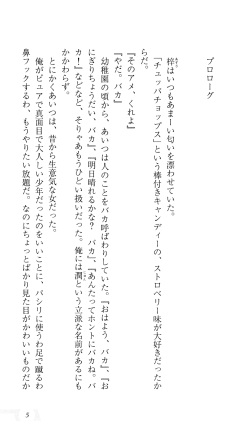 プロローグ
梓はいつもあまーい匂いを漂わせていた。
「チェッパチョップス」という棒付きキャンディーの、ストロベリー味が大好きだったか
らだ。
『そのアメ、くれよ』
『やだ。バカ』
幼稚園の頃から、あいつは人のことをバカ呼ばわりしていた。『おはよう、バカ』、『お
にぎりちょうだい、バカ』、『明日晴れるかな？　バカ』、『あんたってホントにバカね。バ
カ！』などなど、そりゃあもうひどい扱いだった。俺には潤という立派な名前があるにも
かかわらず。
とにかくあいつは、昔から生意気な女だった。
俺がピュアで真面目で大人しい少年だったのをいいことに、パシリに使うわ足で蹴るわ
鼻フックするわ、もうやりたい放題だ。なのにちょっとばかり見た目がかわいいものだか
5